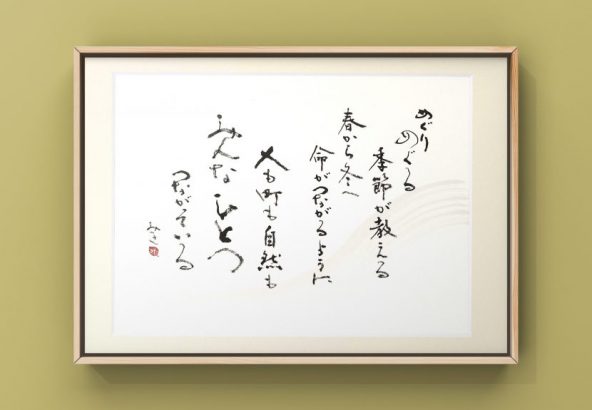 めぐり
めぐる
季節が教える
春から冬へ
命がつながるように
人も町も自然も
みんなひとつ
つながっている
みさ